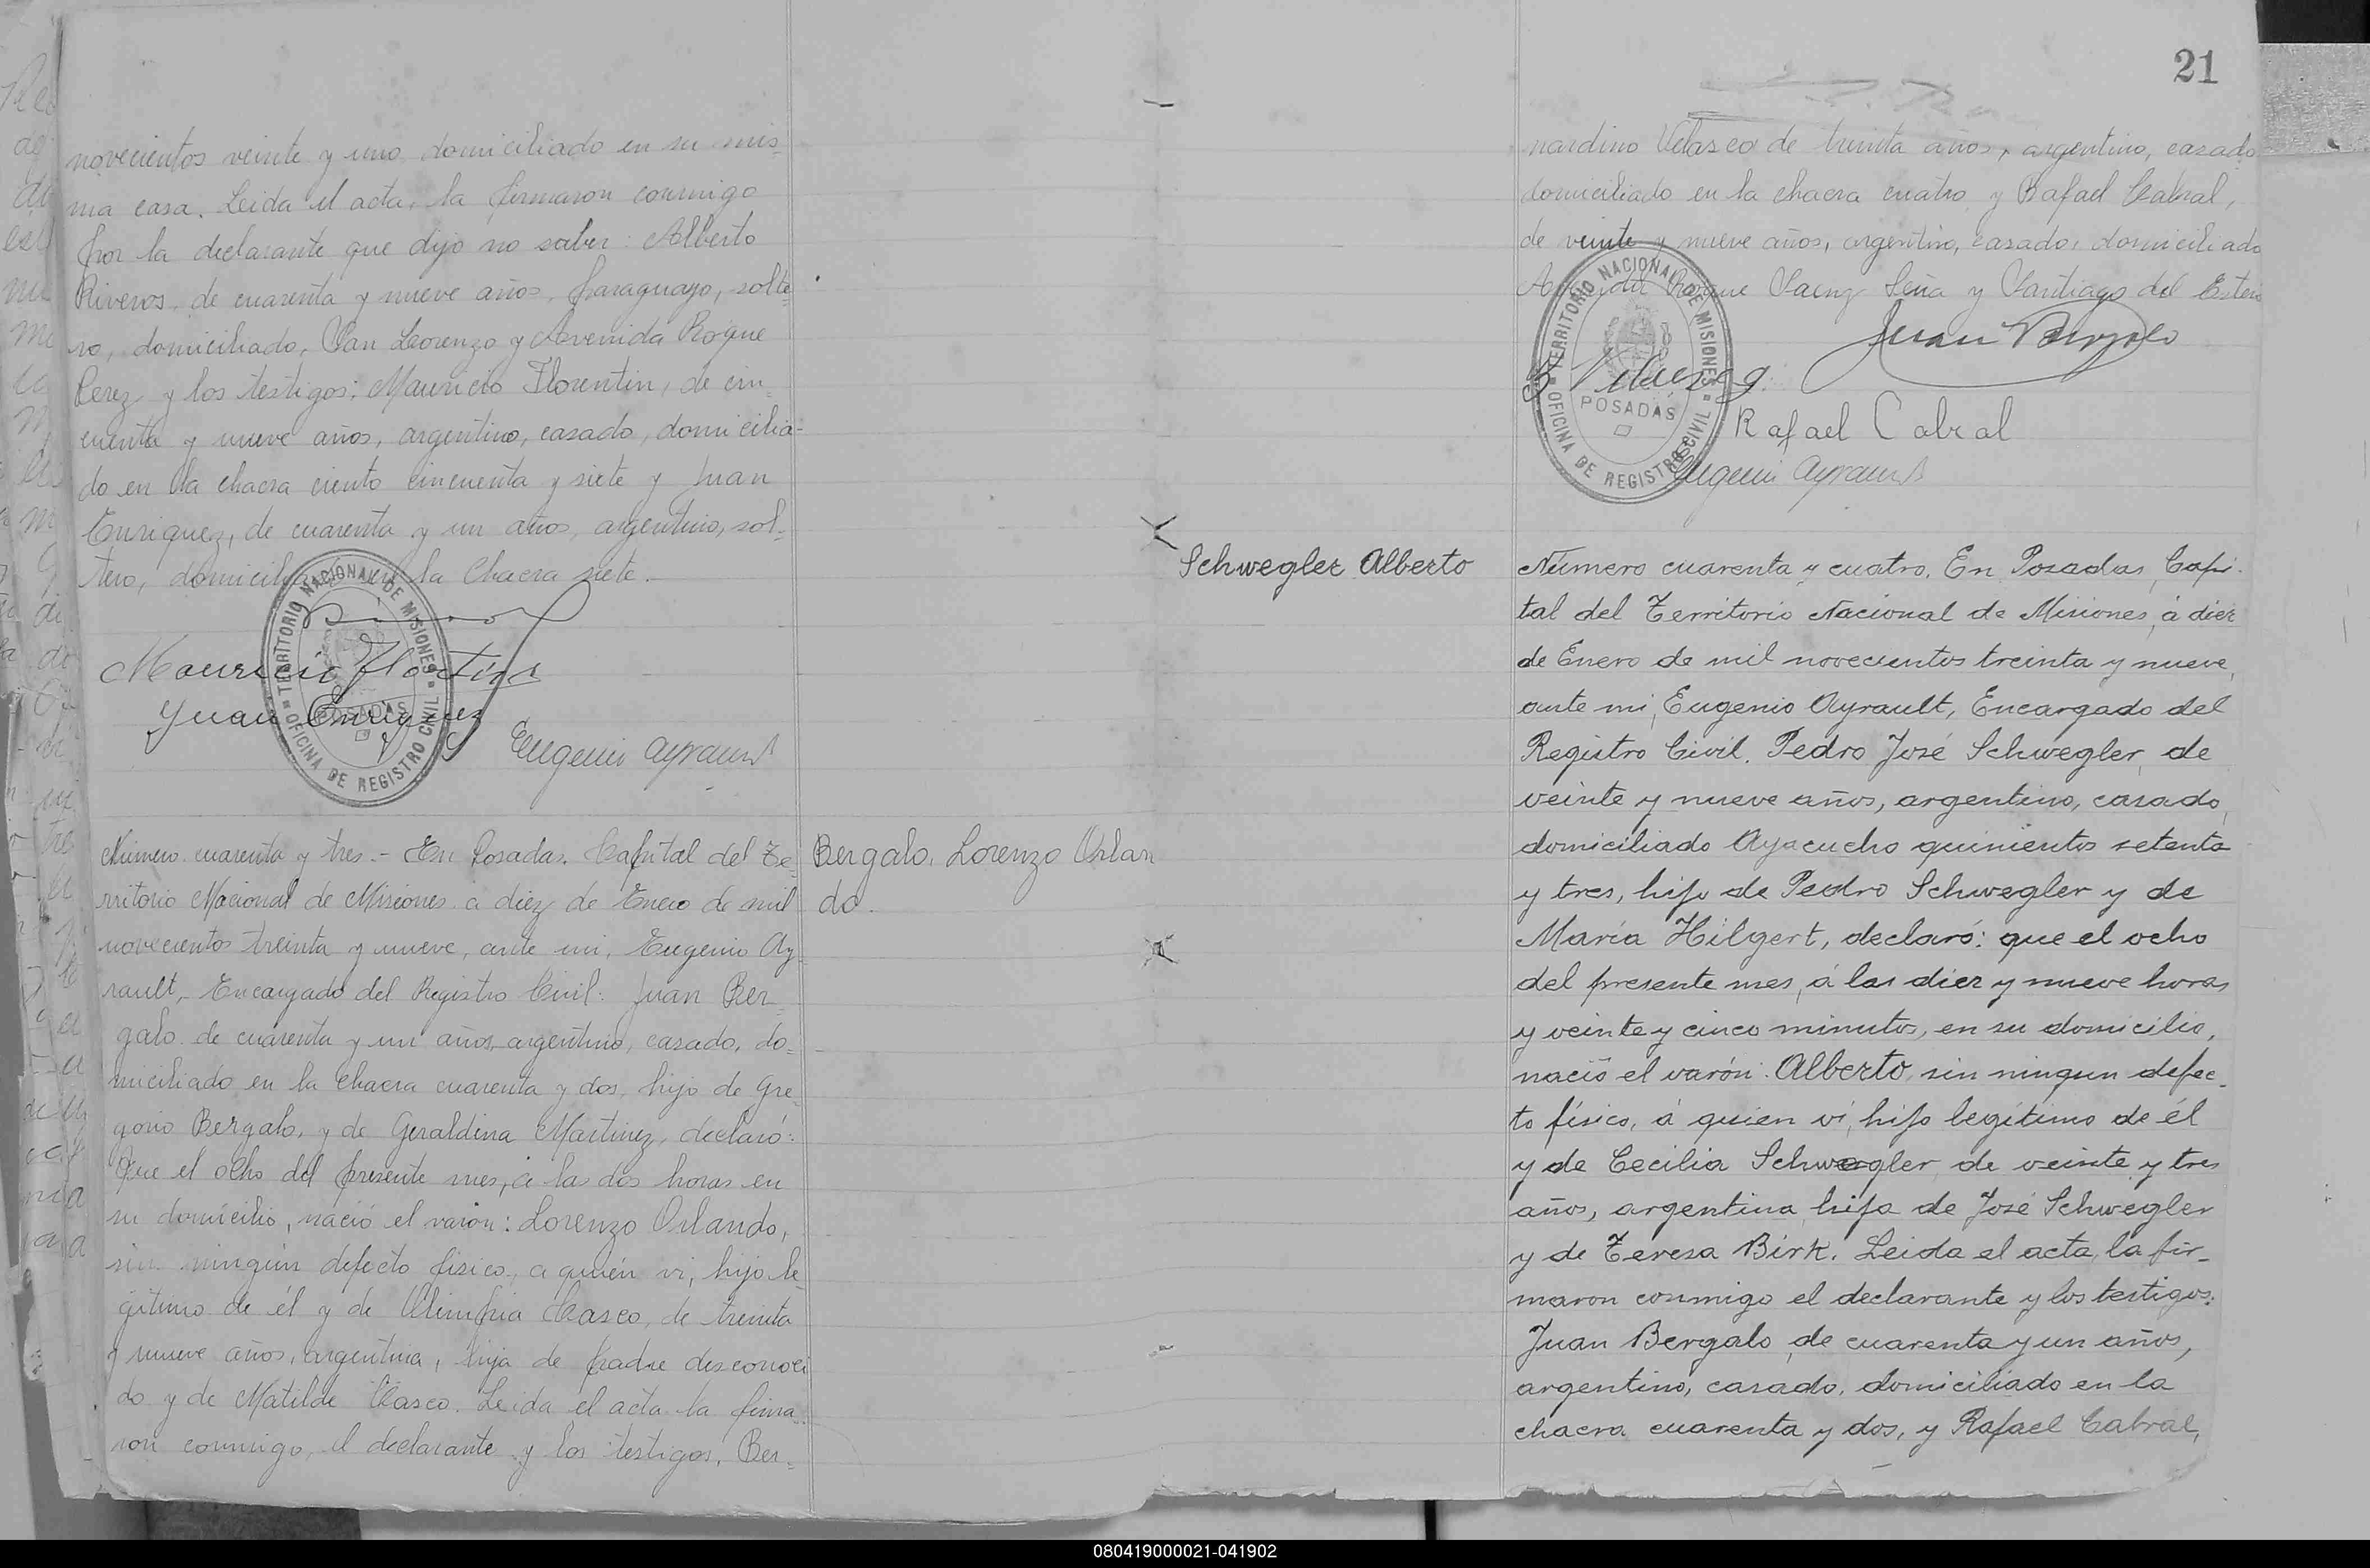 novecientos veinte y uno, domiciliado en su mis-
ma casa. Leida el acta, la firmaron conmigo
por la declarante que dijo no saber: Alberto
Riveros, de cuarenta y nueve años, paraguayo, solte-
ro, domiciliado, San Lorenzo y Avenida Roque
Perez y los testigos: Mauricio Florentin, de cin-
cuenta y nueve años, argentino, casado, domicilia-
do en la chacra ciento cincuenta y siete y Juan
Enriquez, de cuarenta y un años, argentino, sol-
tero, domiciliado en la Chacra siete.
TERRITORIO NACIONAL DE MISIONES
OFICINA DE REGISTRO CIVIL
POSADAS
Mauricio Florentin
Juan Enriquez
Eugenio Ayrault
Número cuarenta y tres.- En Posadas, Capital del Te-
rritorio Nacional de Misiones á diez de Enero de mil
novecientos treinta y nueve, ante mi, Eugenio Ay-
rault, Encargado del Registro Civil: Juan Ber-
galo de cuarenta y un años, argentino, casado, do-
miciliado en la chacra cuarenta y dos, hijo de Gre-
gorio Bergalo, y de Geraldina Martinez, declaró:
Que el ocho del presente mes, á las dos horas en
su domicilio, nació el varón: Lorenzo Orlando,
sin ningún defecto físico, a quién vi, hijo le-
gitimo de él y de Olimpia Chasco, de treinta
y nueve años, argentina, hija de padre desconoci
do y de Matilde Chasco. Leida el acta la firma
ron conmigo, el declarante y los testigos, Ber-
Bergalo, Lorenzo Orlan
do.
21
nardino Velasco de treinta años, argentino, casado
domiciliado en la chacra cuatro y Rafael Cabral,
de veinte y nueve años, argentino, casado, domiciliado
Roque Saenz Peña y Santiago del Estero
Juan Bergalo
TERRITORIO NACIONAL DE MISIONES
OFICINA DE REGISTRO CIVIL
POSADAS
Rafael Cabral
Eugenio Ayrault
Schwegler Alberto
Número cuarenta y cuatro. En Posadas, Capi-
tal del Territorio Nacional de Misiones, á diez
de Enero de mil novecientos treinta y nueve,
ante mi, Eugenio Ayrault, Encargado del
Registro Civil. Pedro José Schwegler, de
veinte y nueve años, argentino, casado,
domiciliado Ayacucho quinientos setenta
y tres, hijo de Pedro Schwegler y de
María Hilgert, declaró: que el ocho
del presente mes, á las diez y nueve horas
y veinte y cinco minutos, en su domicilio,
nació el varón: Alberto, sin ningun defec-
to físico, á quien vi, hijo legítimo de él
y de Cecilia Schwegler, de veinte y tres
años, argentina, hija de José Schwegler
y de Teresa Birk. Leida el acta, la fir-
maron conmigo el declarante y los testigos:
Juan Bergalo, de cuarenta y un años,
argentino, casado, domiciliado en la
chacra cuarenta y dos, y Rafael Cabral,
080419000021-041902